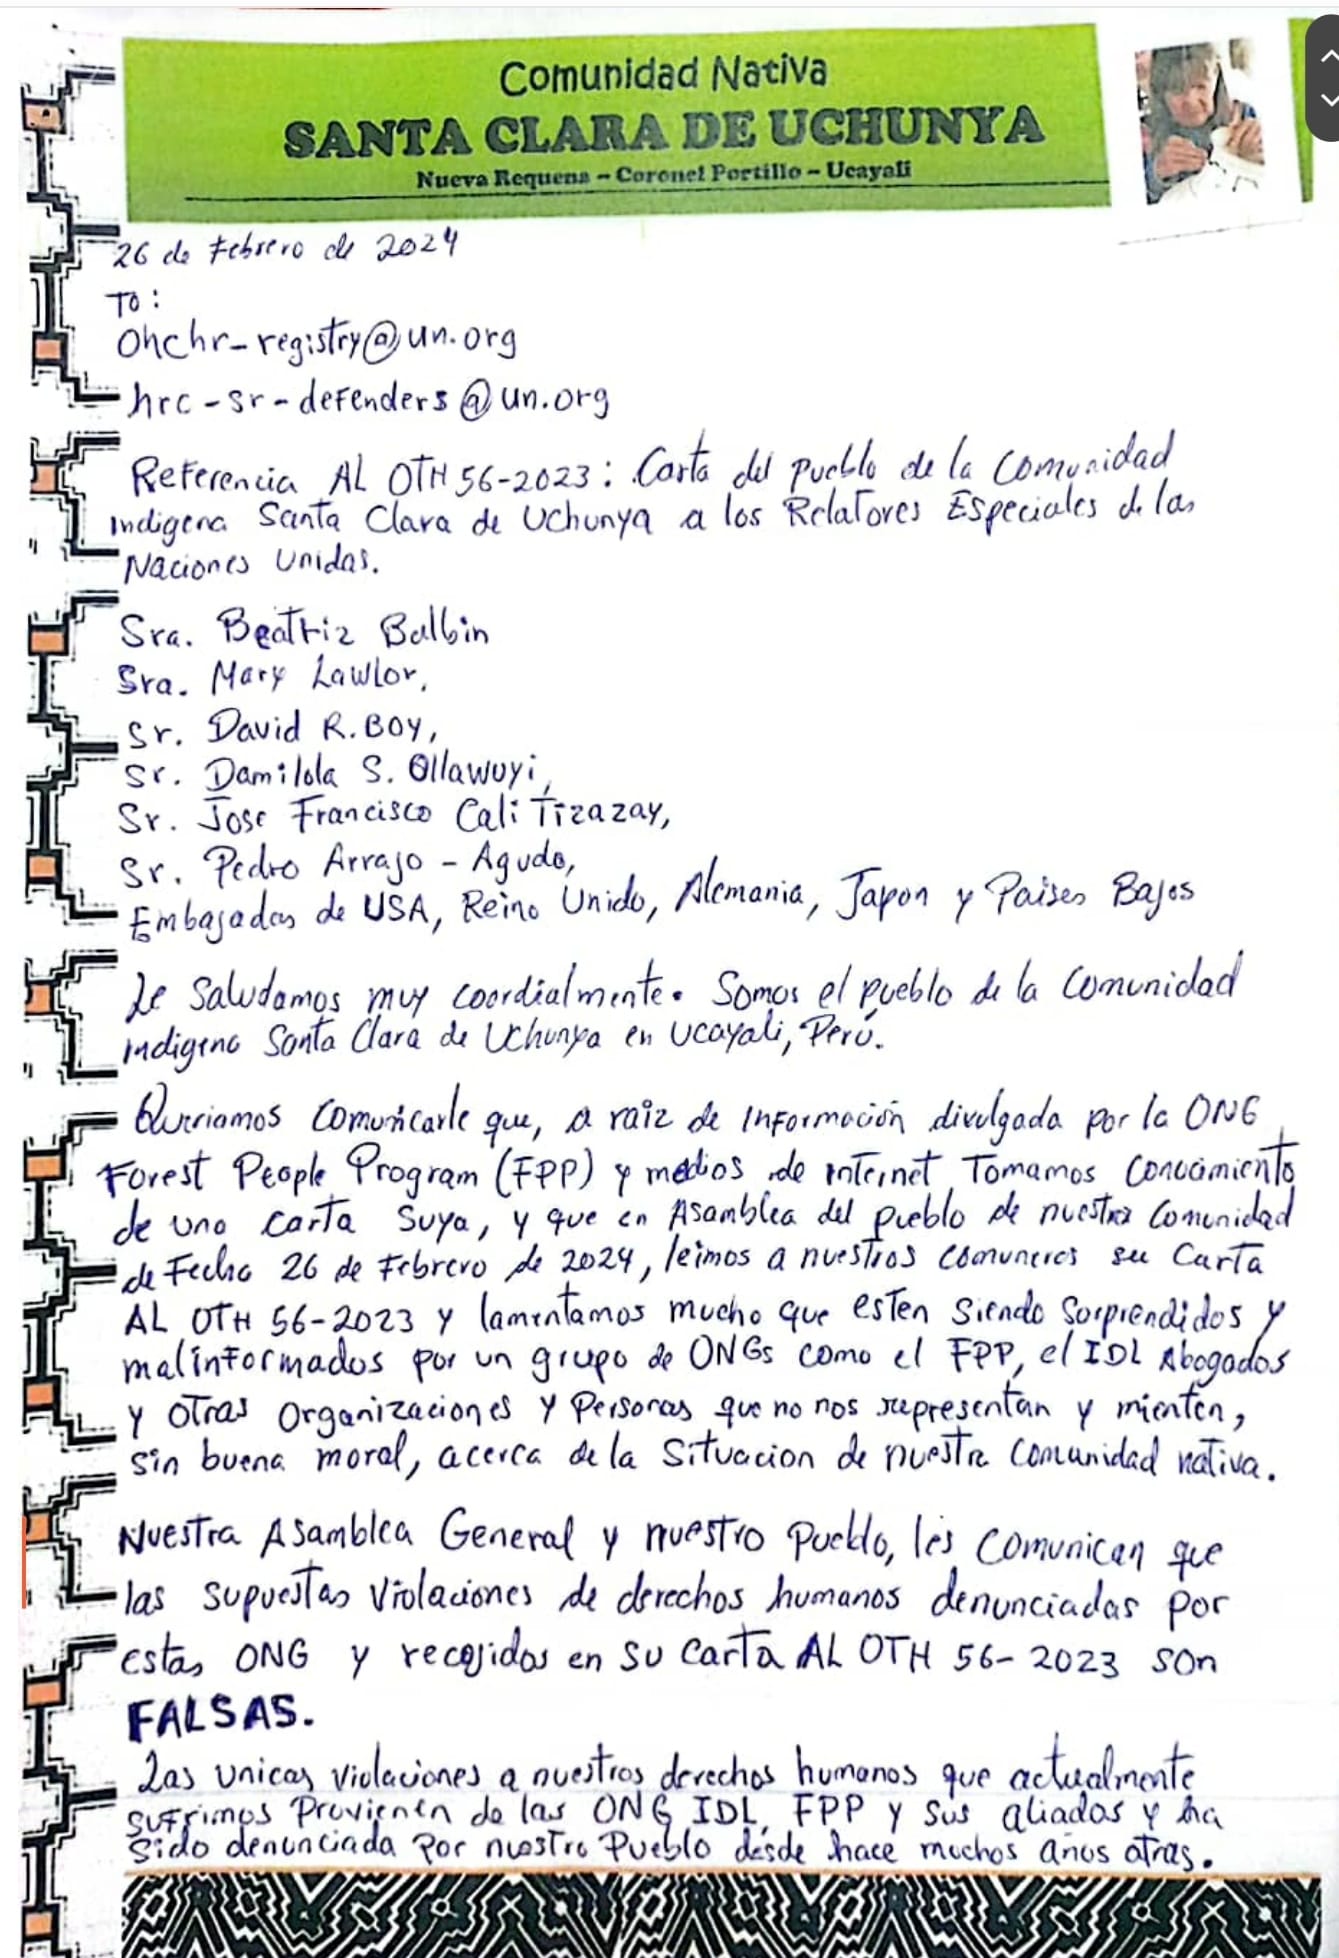 Comunidad Nativa
SANTA CLARA DE UCHUNYA
Nueva Requena – Coronel Portillo – Ucayali
26 de Febrero de 2024
TO:
Ohchr-registry@un.org
hrc-sr-defenders@un.org
Referencia AL OTH 56-2023: Carta del pueblo de la Comunidad
indigena Santa Clara de Uchunya a los Relatores Especiales de las
Naciones Unidas.
Sra. Beatriz Balbin
Sra. Mary Lawlor,
Sr. David R. BOY,
Sr. Damilola S. Ollawuyi,
Sr. Jose Francisco Cali Tizazay,
Sr. Pedro Arrajo - Agudo,
Embajadas de USA, Reino Unido, Alemania, Japon y Paises Bajos
Le Saludamos muy coordialmente. Somos el pueblo de la Comunidad
indigena Santa Clara de Uchunya en Ucayali, Perú.
Querriamos comunicarle que, a raiz de informacion divulgada por la ONG
Forest People Program (FPP) y medios de internet Tomamos conocimiento
de una carta Suya, y que en Asamblea del pueblo de nuestra Comunidad
de Fecha 26 de Febrero de 2024, leimos a nuestros comuneros su Carta
AL OTH 56-2023 y lamentamos mucho que esten siendo Sorprendidos y
malinformados por un grupo de ONGs como el FPP, el IDL Abogados
y otras organizaciones y Personas que no nos representan y mienten,
sin buena moral, acerca de la Situacion de nuestra Comunidad nativa.
Nuestra Asamblea General y nuestro Pueblo, les comunican que
las supuestas violaciones de derechos humanos denunciadas por
estas ONG y recojidas en su carta AL OTH 56-2023 son
FALSAS.
Las unicas violaciones a nuestros derechos humanos que actualmente
sufrimos Provienen de las ONG IDL, FPP y sus aliados y ha
sido denunciada por nuestro Pueblo desde hace muchos años atras.